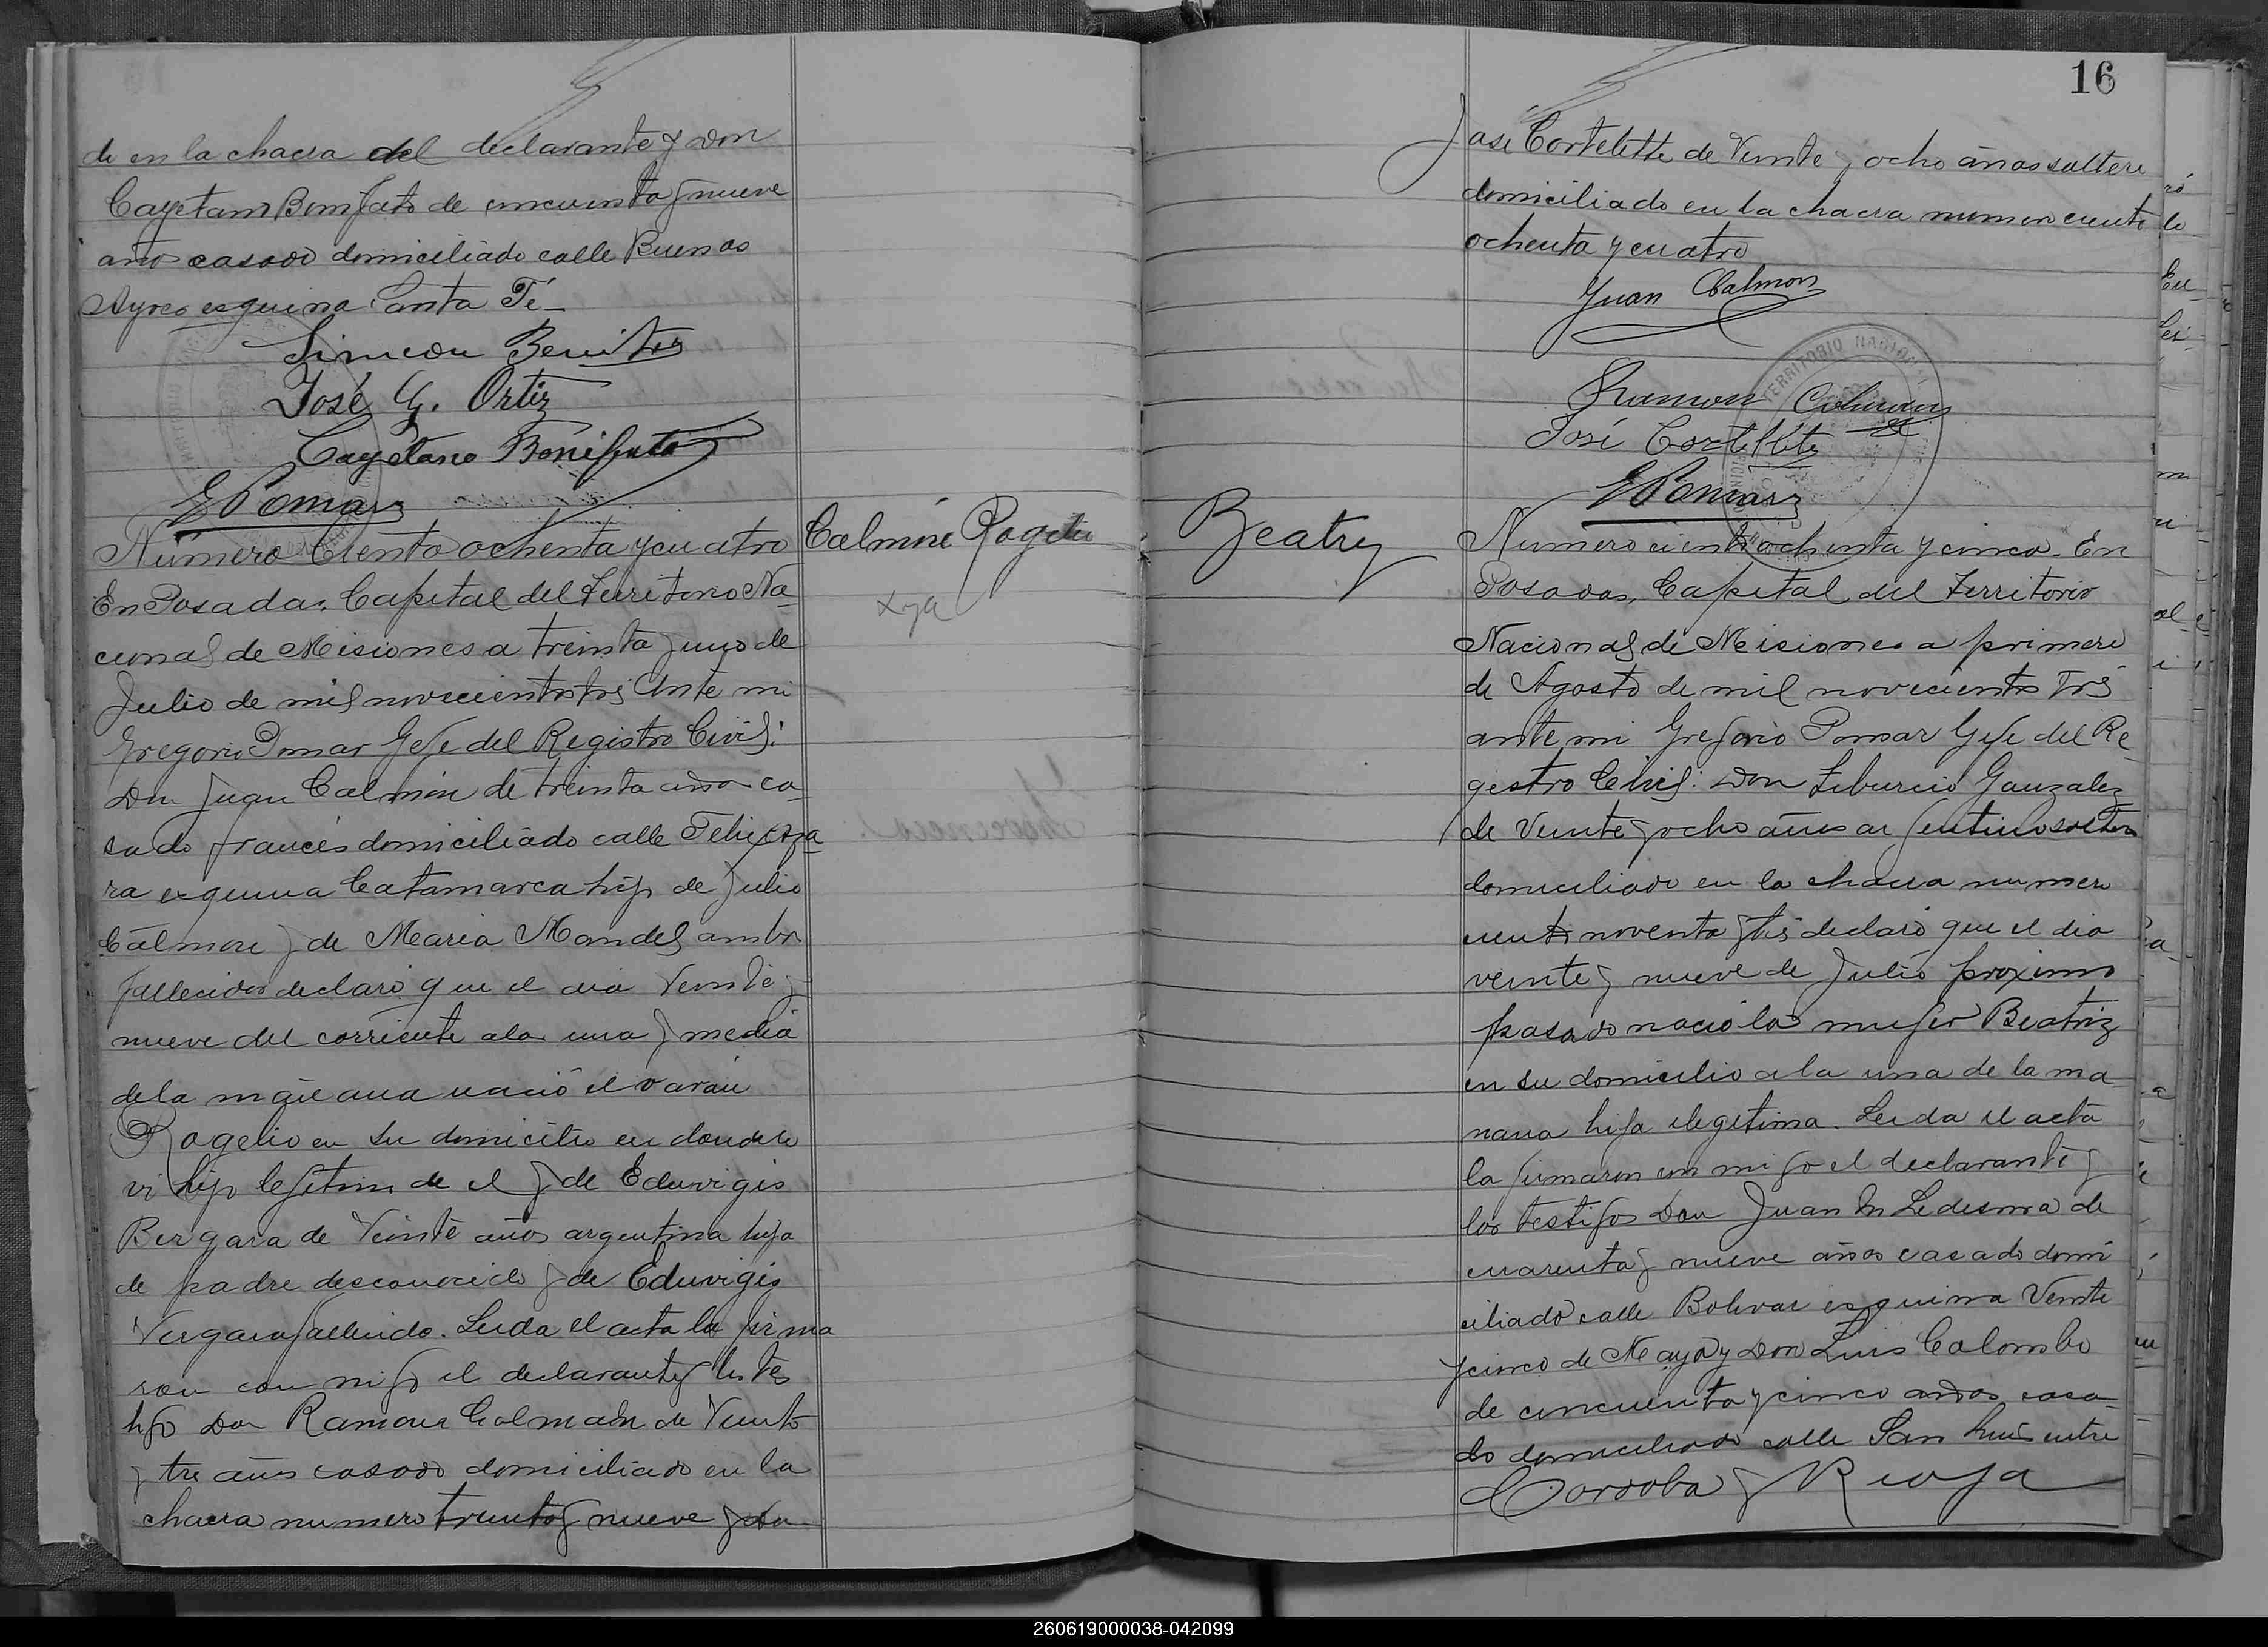 de en la chacra del declarante y Don
Cayetano Bonifato de cincuenta y nueve
años casado domiciliado calle Buenos
Ayres esquina Santa Fé
Simeon Benites
José G. Ortiz
Cayetano Bonifato
G Pomar
Número Ciento ochenta y cuatro
En Posadas, Capital del Territorio Na-
cional de Misiones a treinta y uno de
Julio de mil novecientos tres Ante mi
Gregorio Pomar Gefe del Registro Civil:
Don Juan Calmon de treinta años ca-
sado francés domiciliado calle
ra esquina Catamarca hijo de Julio
Calmon y de Maria Mandel ambos
fallecidos declaró que el dia Veinte y
nueve del corriente a la una y media
de la mañana nació el varon
Rogelio en su domicilio en donde lo
vi hijo legitimo de el y de Eduvigis
Bergara de Veinte años argentina hija
de padre desconocido y de Eduvigis
Vergara fallecido. Leida el acta la firma
ron con migo el declarante y los tes
tigo Don Ramon Calmon de Veinte
y tre años casado domiciliado en la
chacra numero treinta y nueve y Don
Calmon Rogelio
16
José Cortelette de Veinte y ocho años soltero
domiciliado en la chacra numero ciento
ochenta y cuatro
Juan Calmon
Ramon Calmon
José Cortellete
G Pomar
TERRITORIO NACIONAL
Beatriz
Numero ciento ochenta y cinco. En
Posadas, Capital del Territorio
Nacional de Misiones a primero
de Agosto de mil novecientos tres
ante mi Gregorio Pomar Gefe del Re-
gistro Civil: Don Tiburcio Gonzalez
de Veinte y ocho años argentino soltero
domiciliado en la chacra numero
ciento noventa y tres declaró que el dia
veinte y nueve de Julio proximo
pasado nació la mujer Beatriz
en su domicilio a la una de la ma
ñana hija ilegitima. Leida el acta
la firmaron con migo el declarante y
los testigos Don Juan M Ledesma de
cuarenta y nueve años casado domi
ciliado calle Bolivar esquina Veinte
y cinco de Mayo y Don Luis Colombo
de cincuenta y cinco años casa-
do domiciliado calle San Luis entre
Cordoba y Rioja
260619000038-042099